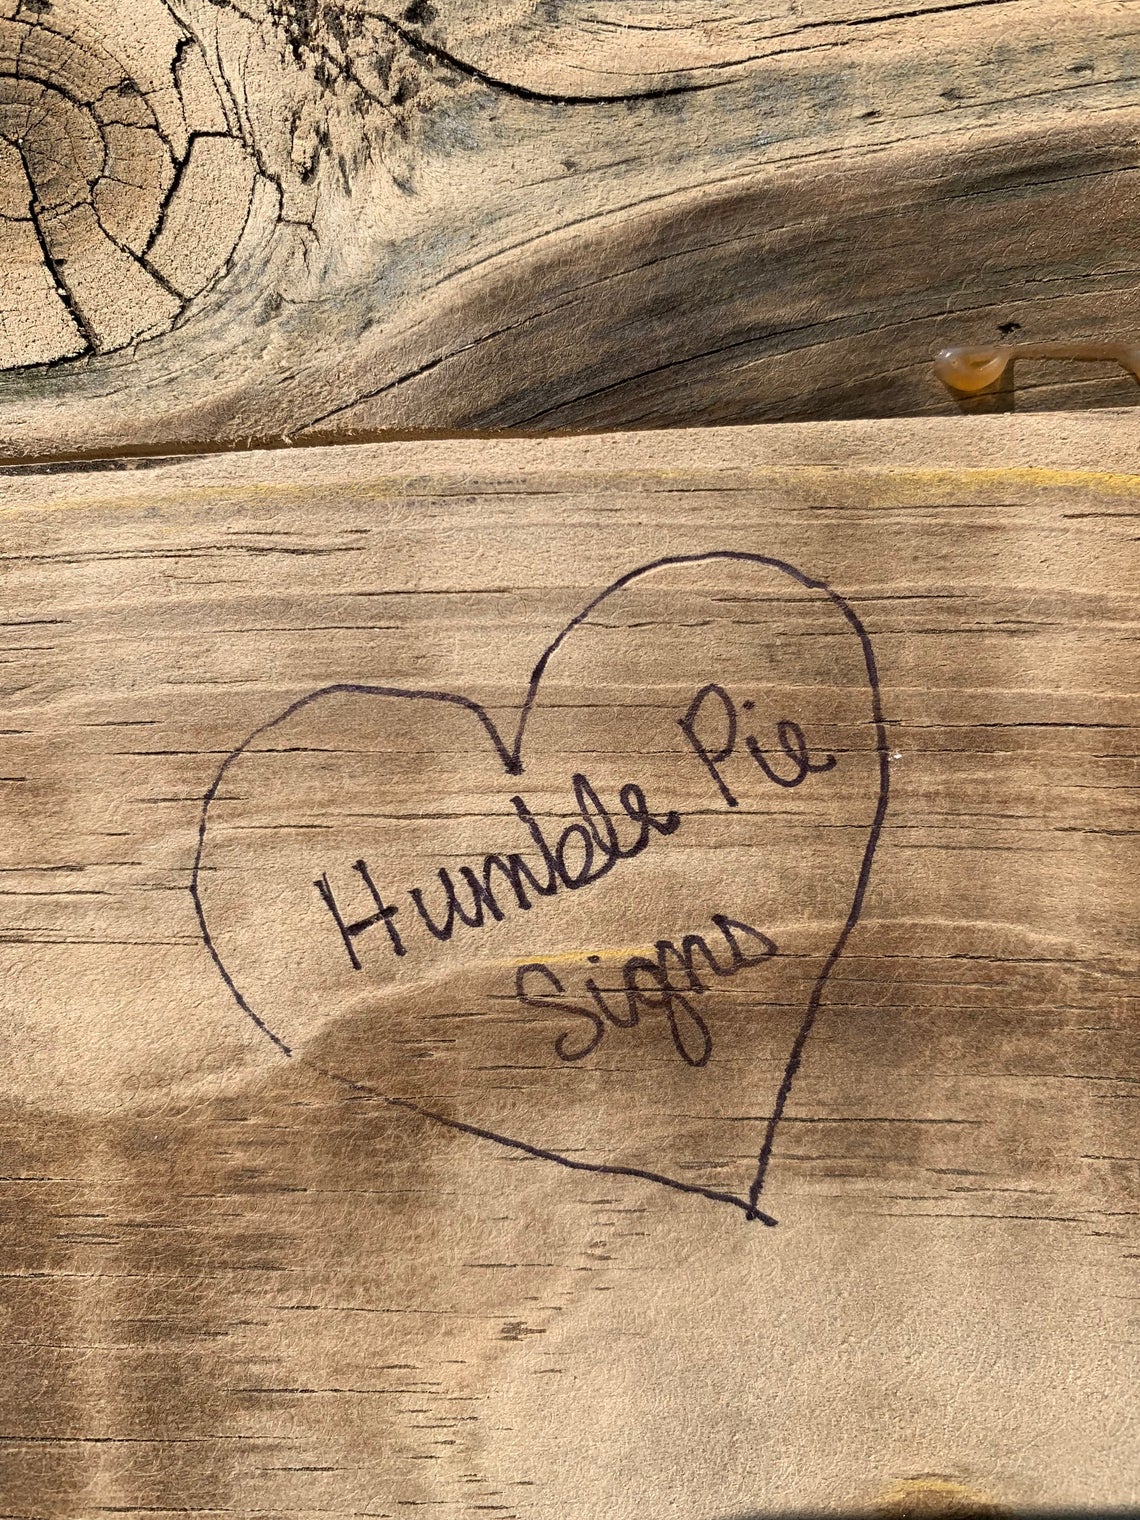 Humble Pie
Signs